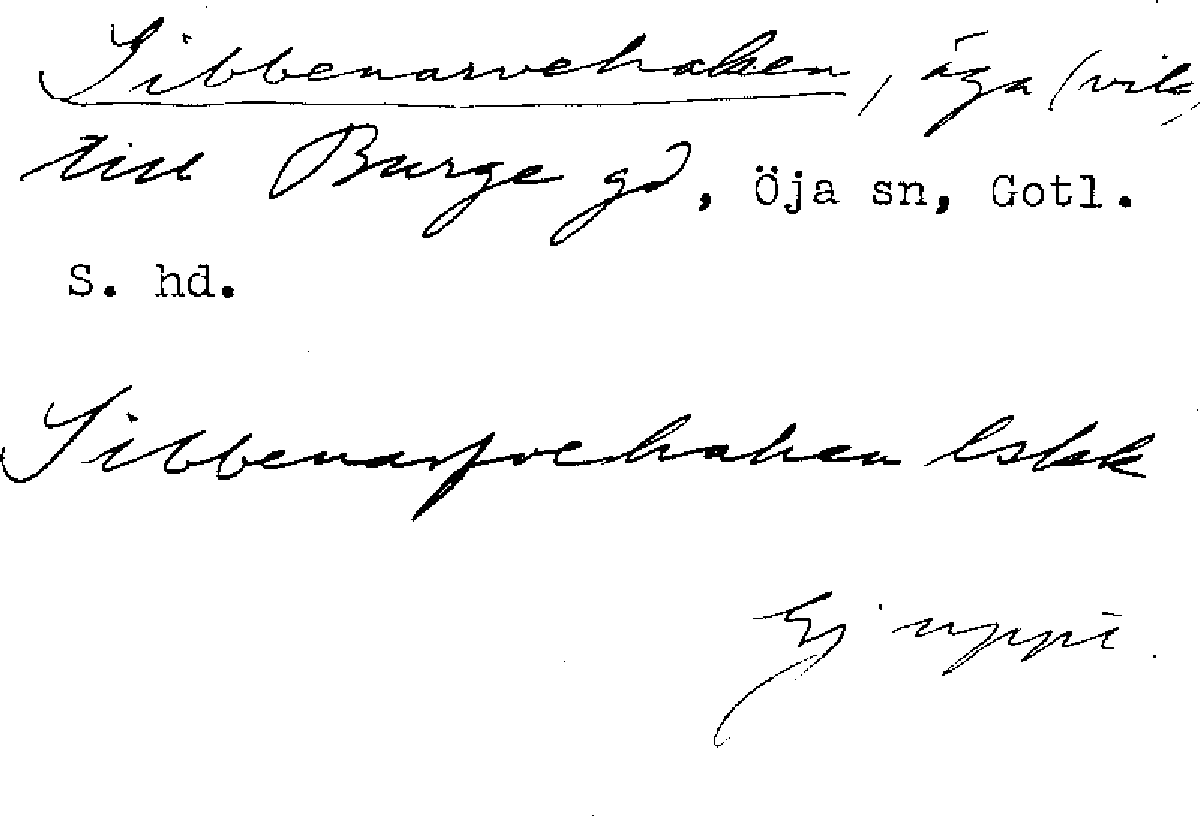 Sibbenarvehaken, äga (vik)
till Burge gd, Öja sn, Gotl.
S. hd.
Sibbenarfvehaken lskk
Ej uppt.